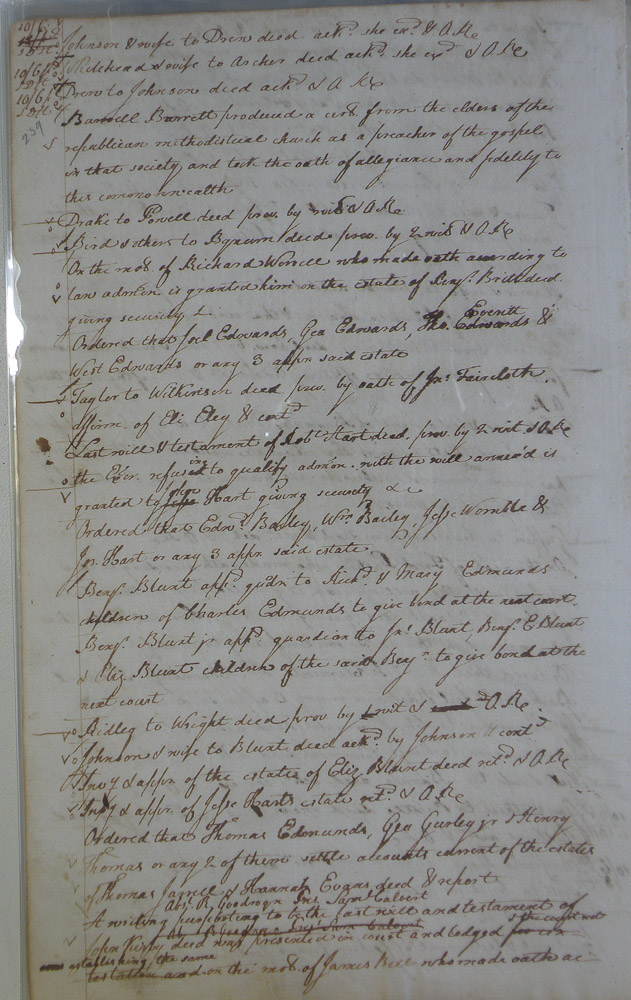 10/6
Johnson & wife to Drew deed ackd. she exd. & O.Re
10/6
Whitehead & wife to Archer deed ackd. she exd & O Re
10/6
Drew to Johnson deed ackd. & O Re
Barrett produced a cert. from the elders of the
239
republican methodistical church as a preacher of the gospel
in that society, and took the oath of allegiance and fidelity to
this commonwealth
Drake to Powell deed prov. by wits & O. Re
Bird & others to Bynum deed prov. by 2 wits & O Re
On the mot. of Richard Worrell who made oath according to
law admōn is granted him on the estate of Benj. Britt decd.
giving security &
Everett
Ordered that Joel Edwards, Geo Edwards, Tho. Edwards &
West Edwards or any 3 appr. said estate
Taylor to Wilkinson deed prov. by oath of Jns. Faircloth,
affirm. of Eli Eley & contd
Last will & testament of Robt. Hart decd. prov. by 2 wit & O Re
the Exr. refusing to qualify admōn. with the will annex'd is
granted to Jesse Hart giving security &c
Ordered that Edwd. Bailey, Wm. Bailey, Jesse Womble &
Jos. Hart or any 3 appr. said estate.
Benj. Blunt appd. gudn to Richd. & Mary Edmunds
children of Charles Edmunds to give bond at the next court.
Benj. Blunt jr appd. guardian to Jn. Blunt, Benj. E Blunt
& Eliz Blunt children of the said Benj. to give bond at the
next court
Ridley to Wright deed prov by wit & O. Re.
Johnson & wife to Blunt deed ackd. by Johnson & contd
Invy & appr. of the estate of Eliz. Blunt decd retd. & O. Re
Invy & appr. of Jesse Harts estate retd. & O Re
Ordered that Thomas Edmunds, Geo Gurley jr & Henry
Thomas or any 2 of them settle accounts current of the estates
of Thomas Jarrell & Hannah Evans decd & report
Abs. B. Goodwyn Jns. Saml Calvert
A writing purporting to be the last will and testament of
John Kirby decd was presented in court and lodged
establishing the same
and on the mot. of James Bell who made oath ac